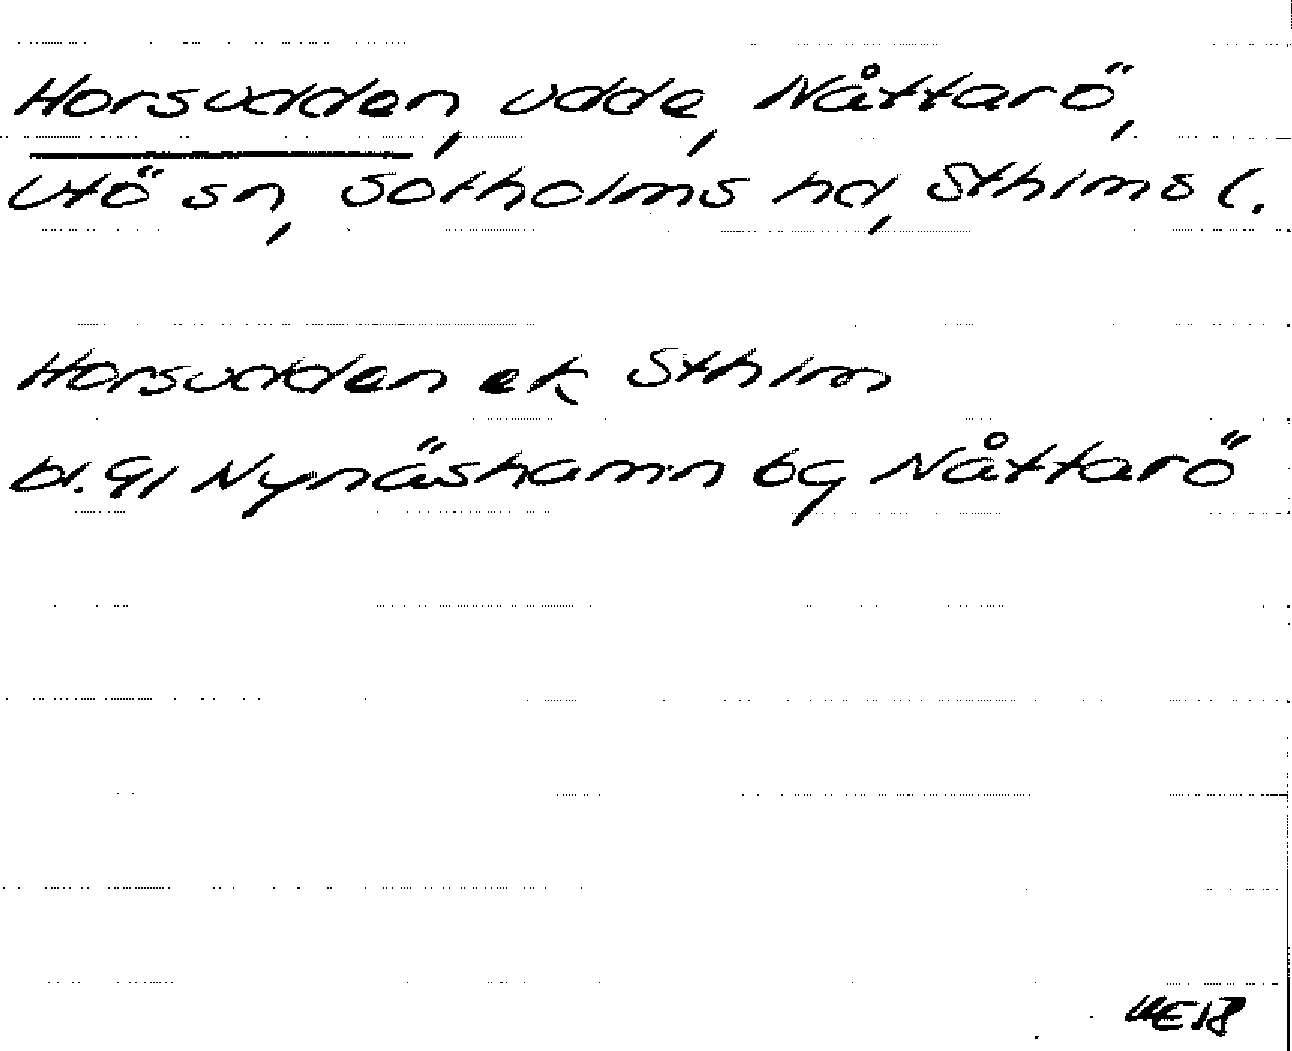 Horsudden, udde, Nåttarö,
Utö sn, Sotholms hd, Sthlms l.
Horsudden ek Sthlm
bl. 91 Nynäshamn bg Nåttarö